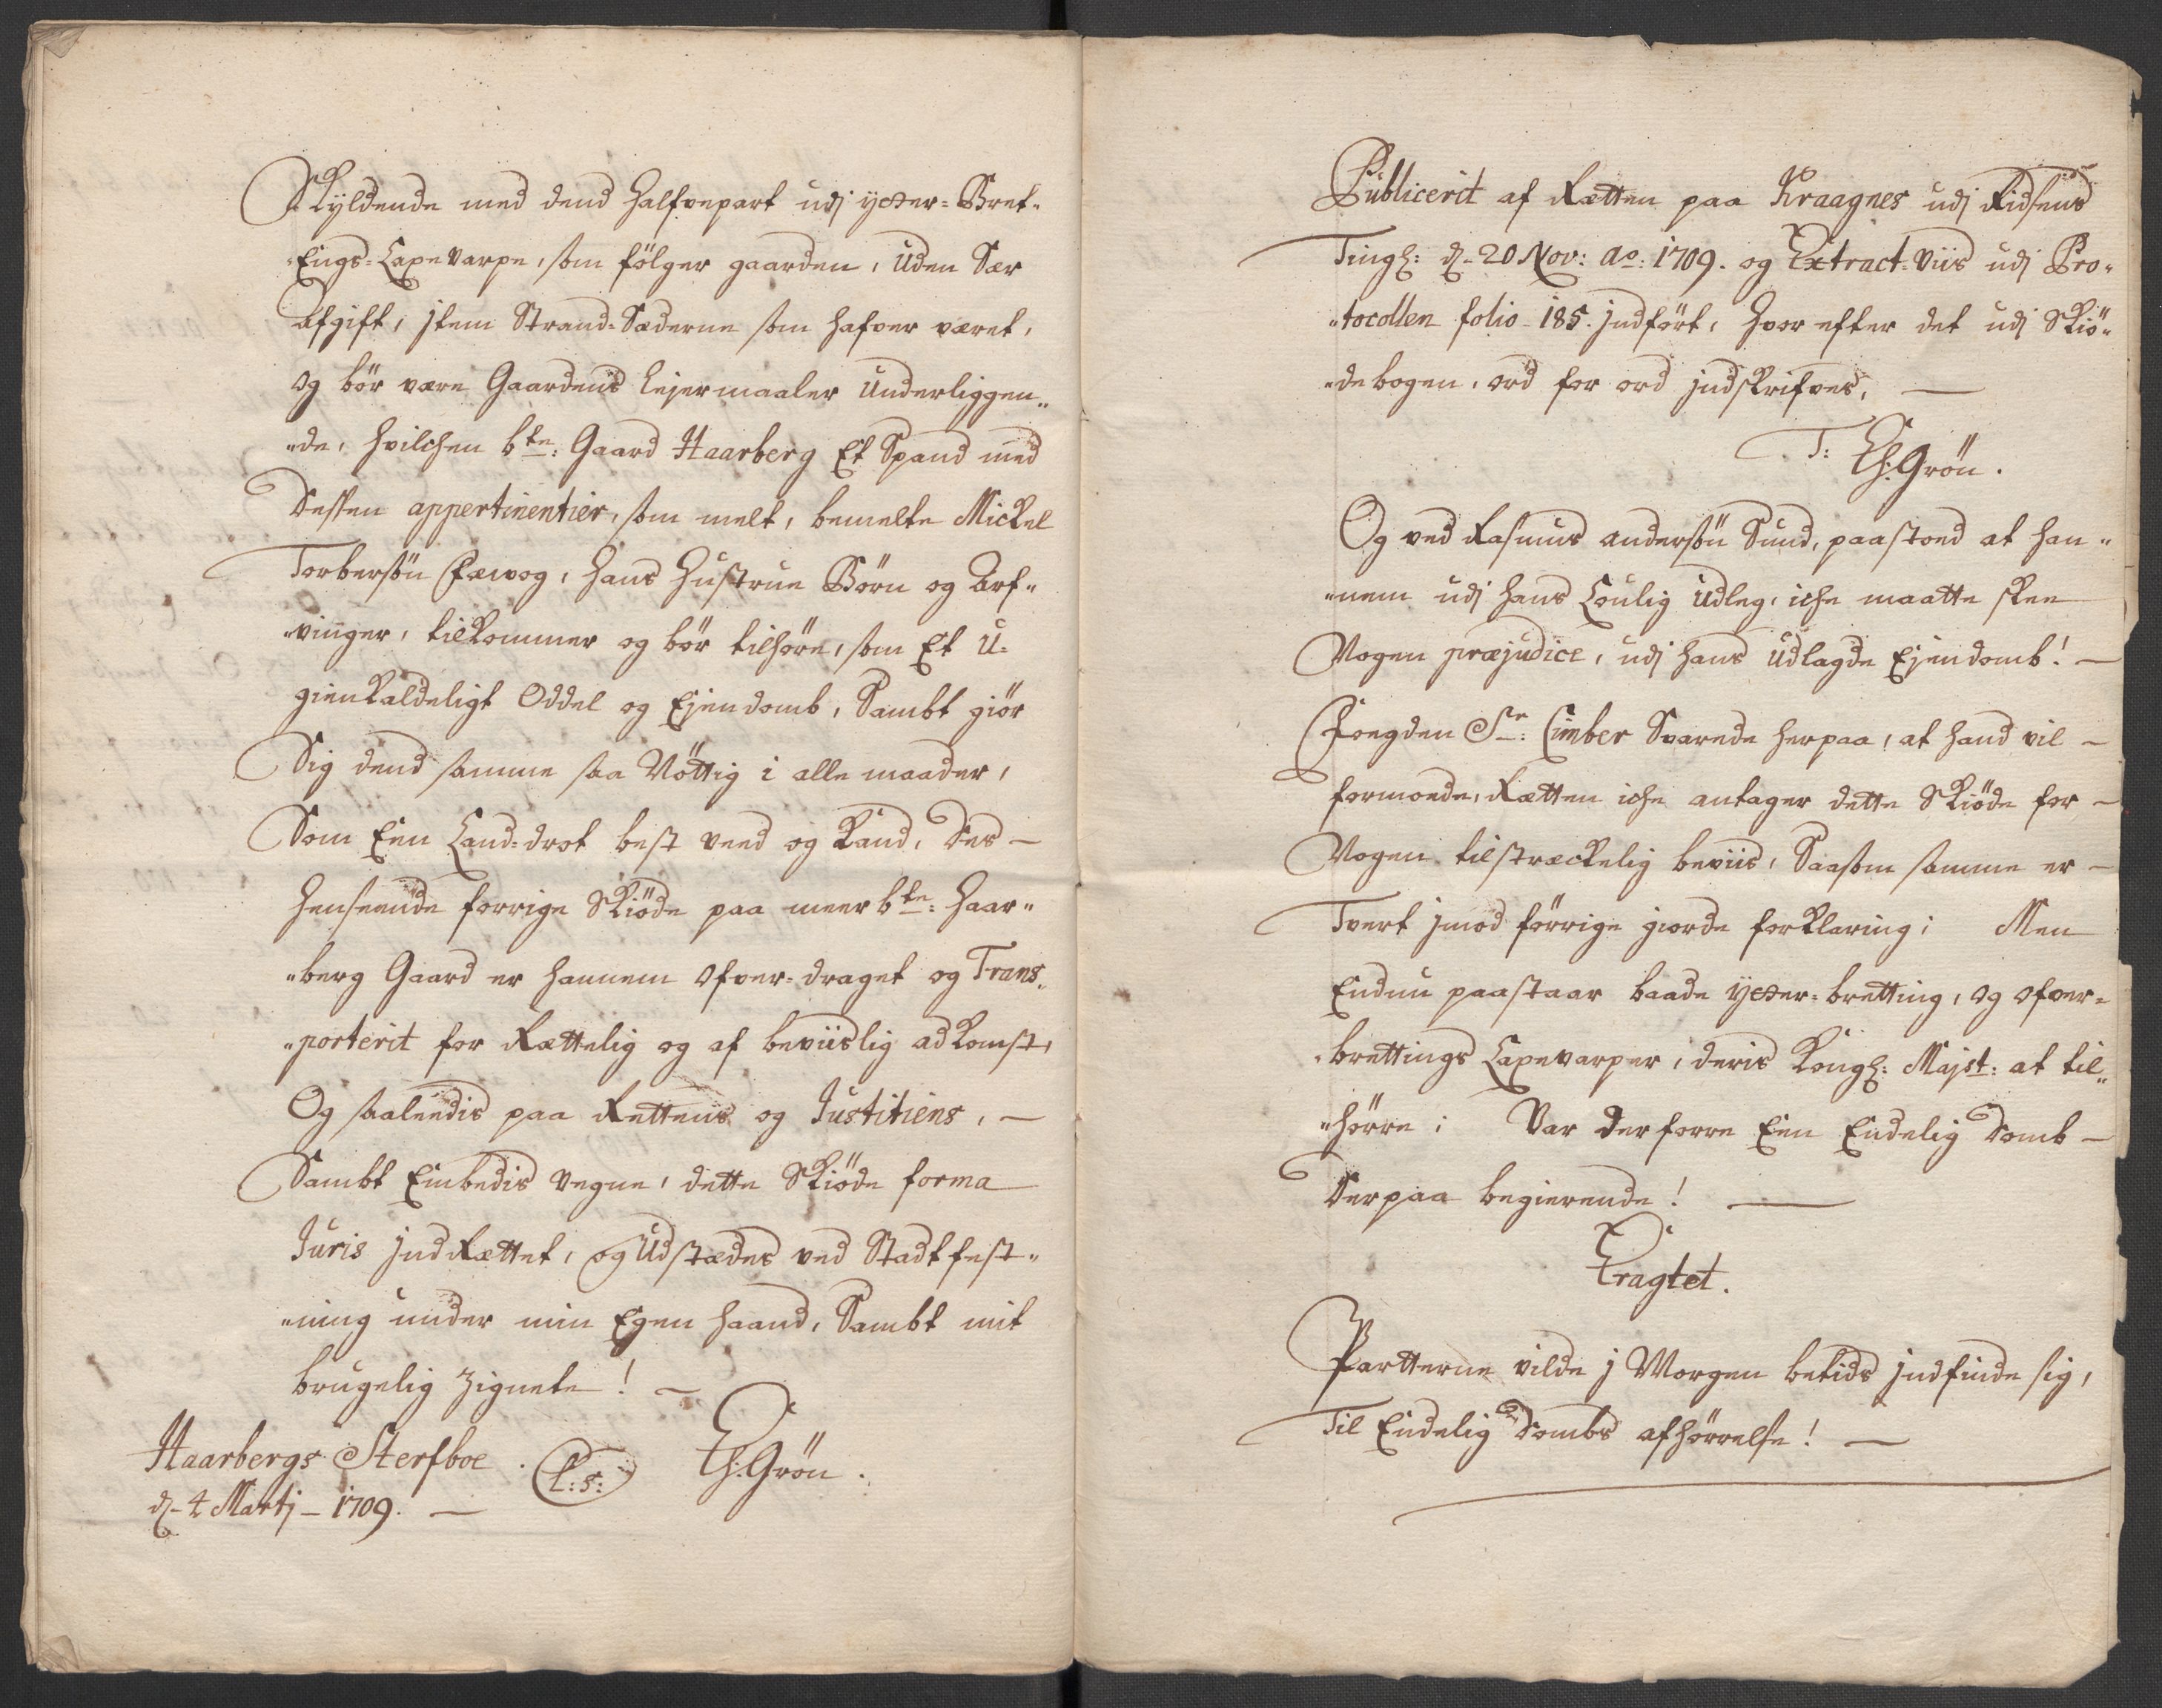 Skyldende med dend halfvepart udj ytter-Bret-
Engs-Laxevarpe, som fölger gaarden, uden Sær
Afgift, jtem Strand-Sæderne som hafver været,
og bör være Gaardens Lejermaaler underliggen„
„de, hvilchen bte: Gaard Haarberg Et Spand med
Dessen appertinentier, som melt, bemelte Mickel
Torbersön Fævog, hans Hustrue Börn og Arf„
„vinger, tilkommer og bör tilhöre, som Et U-
gienkaldeligt Oddel og Ejendomb, Sambt giör
Sig dend samme saa Nöttig i alle maader,
Som Een Land-drot best veed og Kand, Des –
henseende forrige Skiöde paa meer bte: Haar„
„berg Gaard er hannem ofver-draget og Trans„
„porterit for Rættelig og af beviislig adkomst,
Og saaledis paa Rettens og Justitiens, –
Sambt Embedis vegne, dette Skiöde forma
Juris jndrættet, og udstædes ved Stadtfest„
„ning under min Egen haand, Sambt mit
brugelig Zignete! –
Haarbergs Sterfboe. (L:S:) Th:Grön.
d. 4 Martj – 1709. –
Publicerit af Rætten paa Kraagnes udj Ridsens
Tingh: d. 20 Nov: Ao: 1709. og Extract-viis udj Pro„
„tocollen folio 185. jndfört, hvorefter det udj Skiö„
„debogen, ord for ord jndskrifves, –
T: Th:Grön.
Og ved Rasmus andersön Sund, paastoed at han„
„nem udj hans Loulig Udleg, iche maatte skee
Nogen præjudice, udj hans udlagde Ejendomb! –
Foegden Sr: Cimber Svarede herpaa, at hand vil –
formoede, Rætten iche antager dette Skiöde for –
Nogen tilstræckelig beviis, Saasom samme er –
Tvert jmod förrige giorde forklaring; Men
Endnu paastaar baade ytter-bretting, og ofver-
„brettings Laxevarper, deris Kongh: Majst: at til„
„hörre; Var derforre Een Endelig Domb –
Derpaa begierende! –
Eragtet.
Partterne vilde j Morgen betids jndfinde sig,
Til Endelig Dombs afhörrelse! –